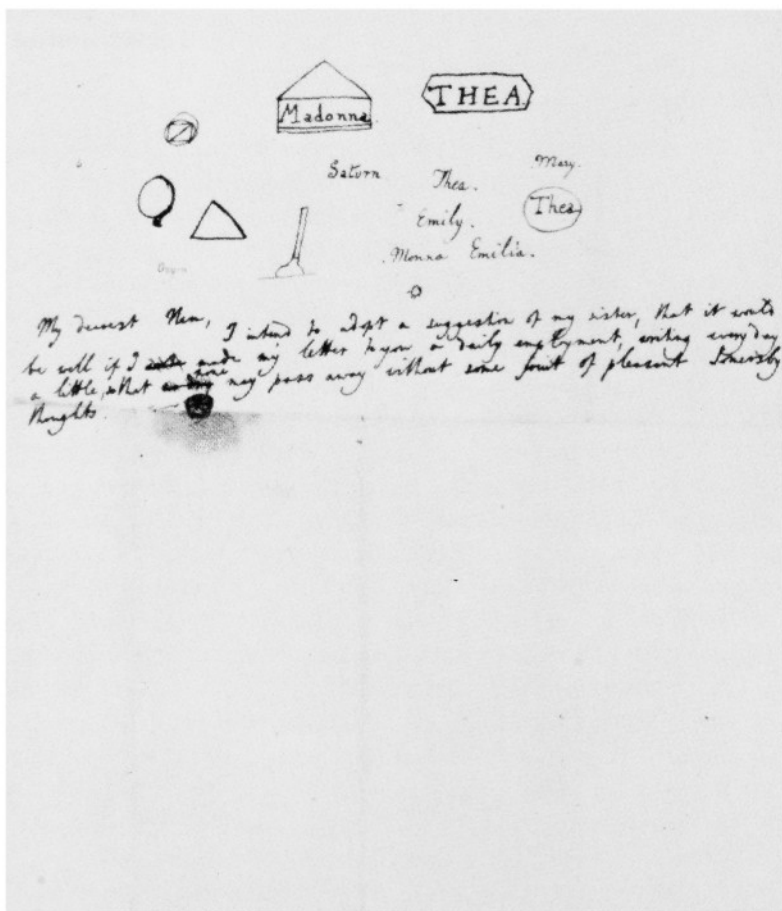 Madonna
THEA
Saturn
Thea.
Mary.
Emily.
Thea
Monna Emilia.
My dearest Nem, I intend to adopt a suggestion of my sister, that it would
be well if I made my letter to you a daily employment, writing everyday
a little, that none may pass away without some fruit of pleasant Somersby
thoughts.